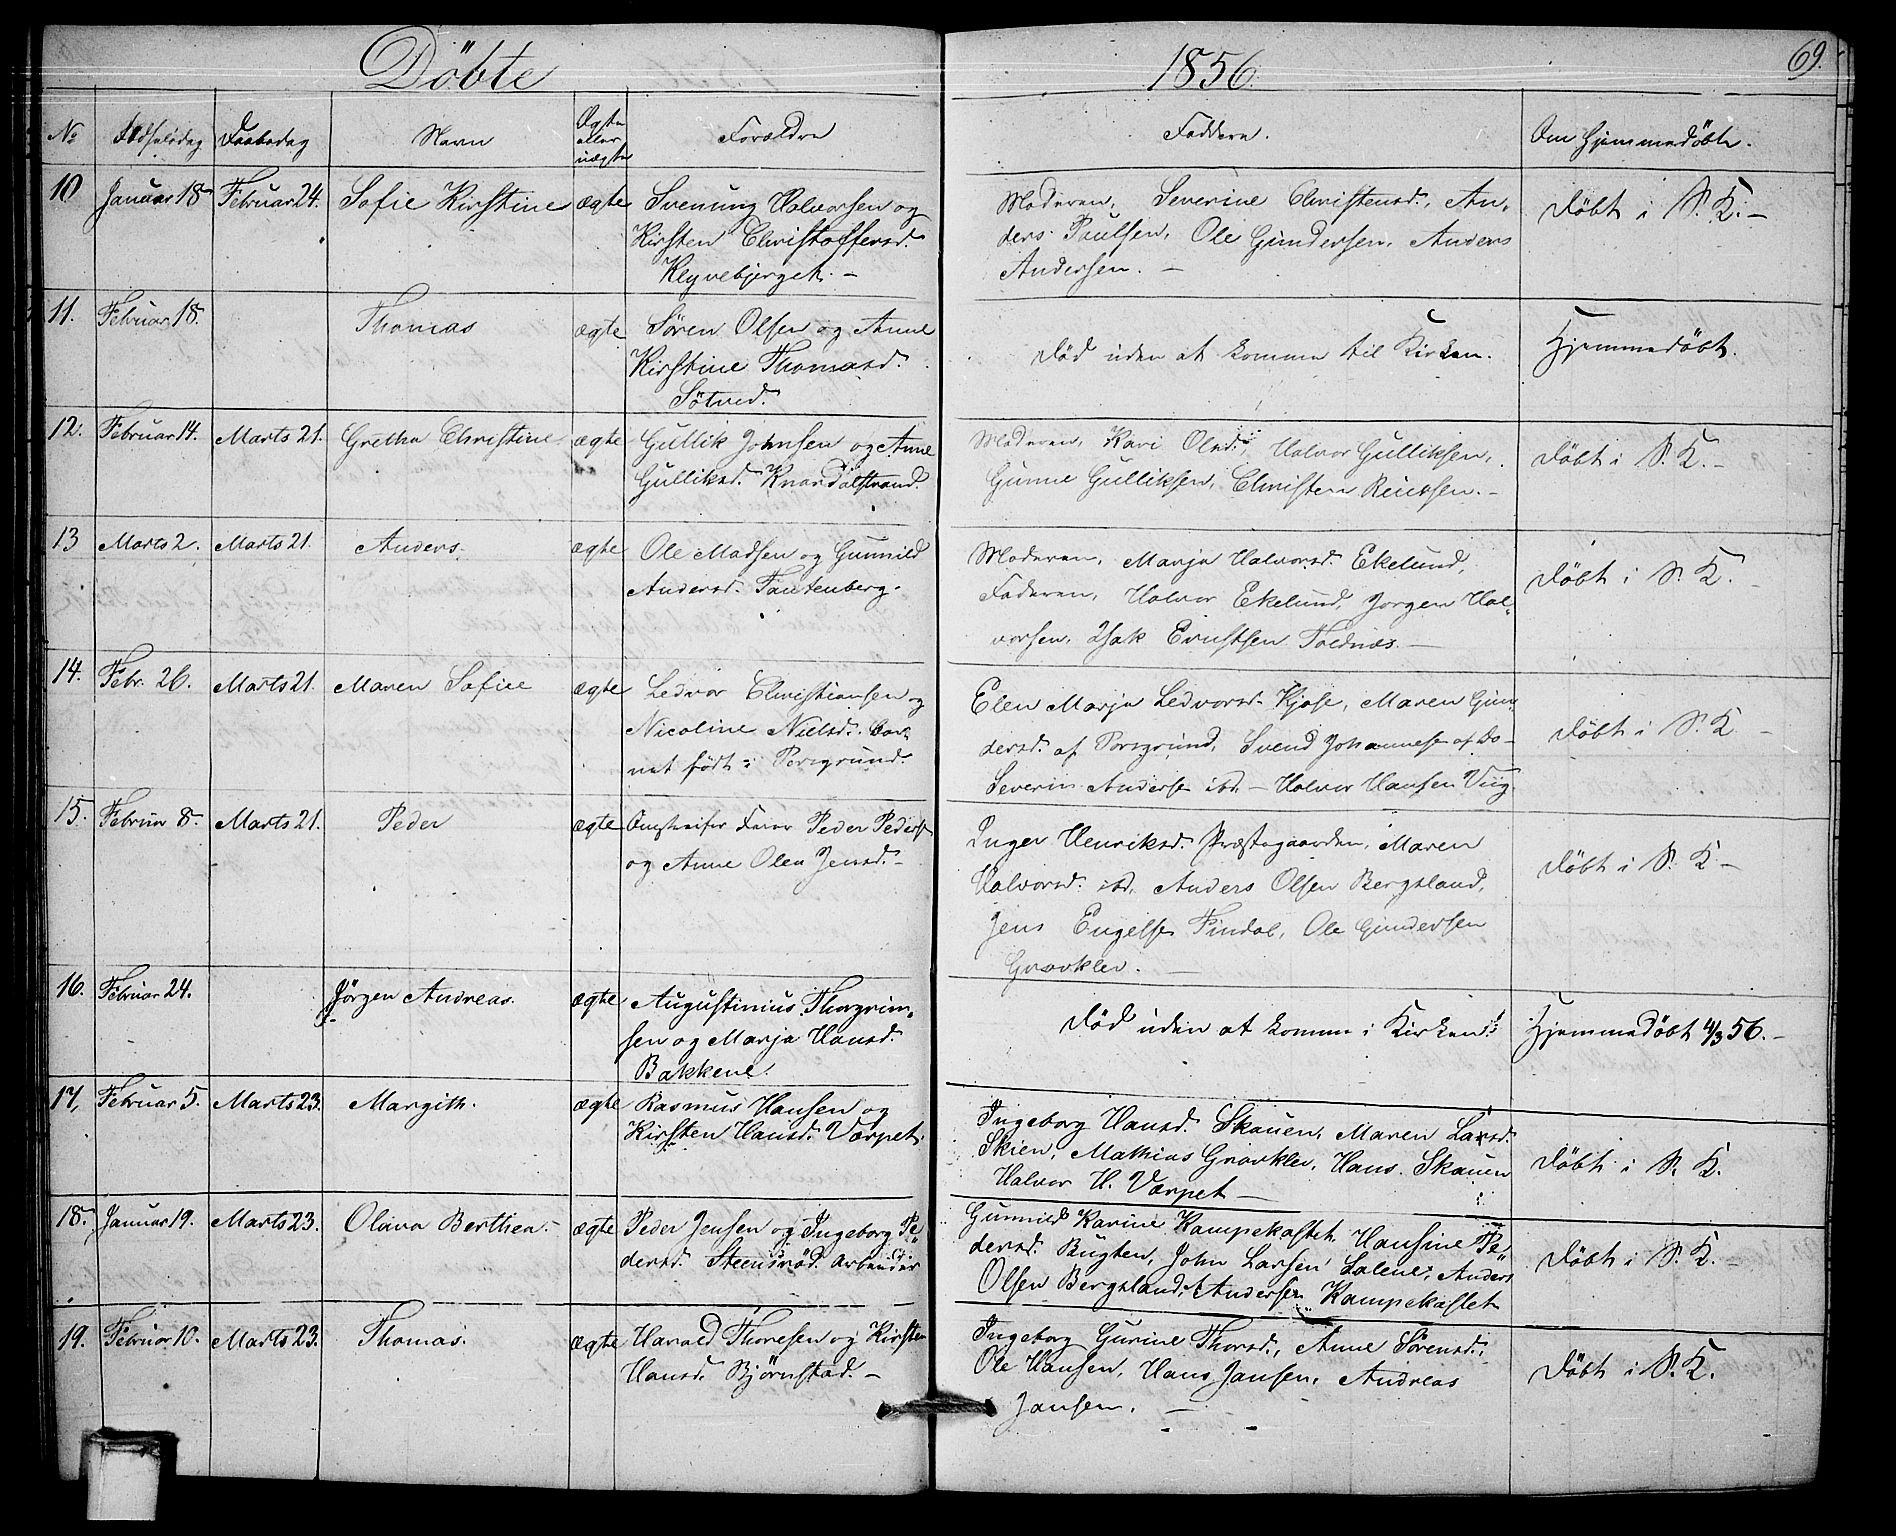 Döbte
1856.
69.
No Födselsdag Daabsdag Navn Ægte eller uægte Forældre Faddere. Om Hjemmedöbte.
10 Januar 18 Februar 24. Sofie Kirstine ægte Svenung Halvorsen og
Kirsten Christoffersd.
Kleyvebjerget. –
Moderen, Severine Christensd., An-
ders Paulsen, Ole Gundersen, Anders
Andersen. –
Döbt i S. K. –
11. Februar 18. Thomas ægte Sören Olsen og Anne
Kirstine Thomasd.
Sötved.
Död uden at komme til Kirken.
Hjemmedöbt.
12. Februar 14. Marts 21. Grethe Christine ægte Gullik Johnsen og Anne
Gulliksd. Knardalstrand.
Moderen, Kari Olsd., Halvor Gulliksen,
Gunne Gulliksen, Christen Knutsen. –
Döbt i S. K. –
13 Marts 2. Marts 21. Anders. ægte Ole Madsen og Gunnild
Andersd. Tautenberg.
Moderen, Marja Halvorsd. Ekelund,
Faderen, Halvor Ekelund, Jorgen Hal-
vorsen, Isak Evensten Foldnæs. –
Döbt i S. K. –
14. Febr. 26. Marts 21. Maren Sofie ægte Ledvor Christiansen og
Nicoline Nielsd. Bar-
net födt i Porsgrund.
Elen Marja Ledvorsd. Kjose, Maren Gun-
dersd. af Porsgrund, Svend Johannesen af Do –
Severin Anderse ibd. – Halvor Hansen Viig
Döbt i S. K –
15. Februar 8. Marts 21. Peder ægte Omstreifer Peder Peders
og Anne Olea Jensd. –
Inger Henriksd. Præstegaarden, Maren
Halvorsd. ibd., Anders Olsen Bergsland,
Jens Engelse Findal, Ole Gundersen
Gravklev. –
Döbt i S. K –
16. Februar 24. Jörgen Andreas. ægte Augustinius Thorgrim-
sen og Marja Hansd.
Bakkene.
Död uden at komme i Kirken
Hjemmedöbt 4/3 56. –
17, Februar 5. Marts 23. Margith. ægte Rasmus Hansen og
Kirsten Hansd. Værpet.
Ingeborg Hansd. Skauen, Maren Larsd.
Skien, Mathias Gravklev, Hans Skauen
Halvor H. Værpet –
Döbt i S. K.
18. Januar 19. Marts 23. Olava Berthea. – ægte Peder Jensen og Ingeborg Pe-
dersd. Steensröd. Arbeider
Gunnild Karine Kampekastet, Hansine Pe-
dersd. Bugten, John Larsen Lalene, Anders
Olsen Bergsland, Andersen Kampekastet
Döbt i S. K. –
19. Februar 10. Marts 23. Thomas. ægte Harald Thoresen og Kirsten
Hansd. Björnstad. –
Ingeborg Gurine Thorsd., Anne Sörensd.,
Ole Hansen, Hans Jansen, Andreas
Jansen. –
Döbt i S. K.